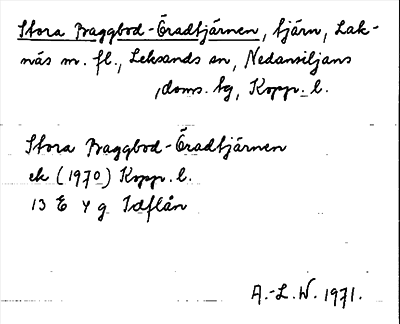 Stora Baggbod-Öradtjärnen, tjärn, Lak-
näs m. fl., Leksands sn, Nedansiljans
doms. tg, Kopp. l.
Stora Baggbod-Öradtjärnen
ek (1970) Kopp. l.
13 E 4 g Idflån
A.-L. W. 1971.